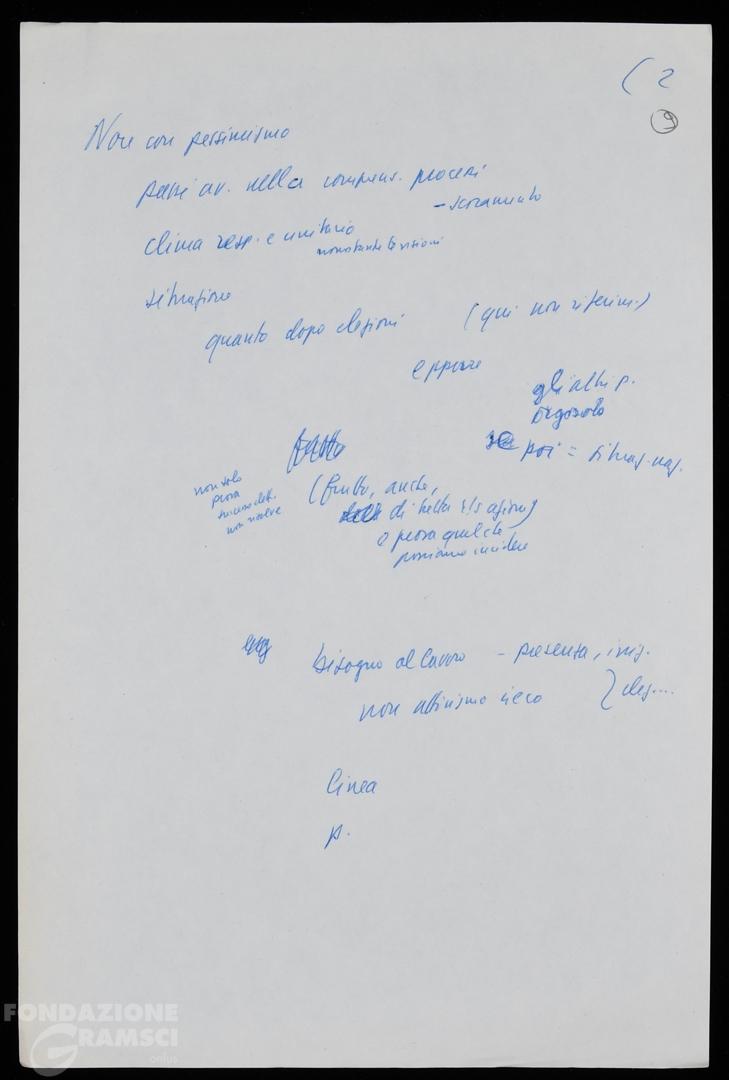 ( 2
9
Non con pessimismo
passi av. nella comprens. processi
- scoramento
clima resp. e unitario
nonostante tensioni
situazione
quanto dopo elezioni (qui non riferim.)
eppure
gli altri p.
Orgosolo
poi = situaz. naz.
non solo
prova
non risolve
(frutto, anche,
di nella
o prova quel che
possiamo incidere
bisogno al lavoro - presenza, iniz.
non attivismo cieco
linea
p.
FONDAZIONE
GRAMSCI
onlus